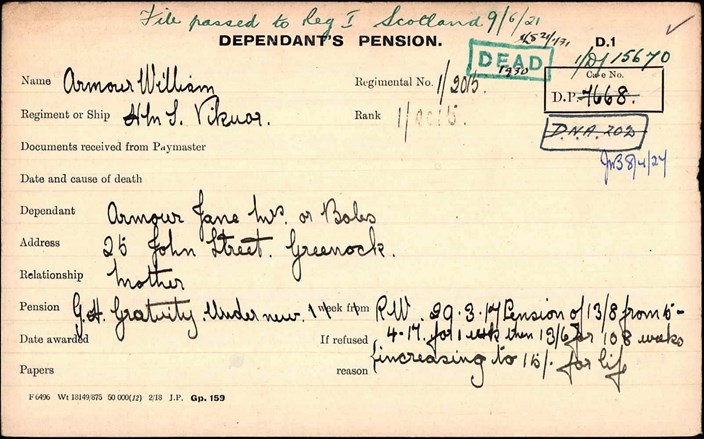 File passed to Reg I Scotland 9/6/21
DEPENDANT'S PENSION.
D.1
DEAD
1930
1/D/15670
Name Armour William
Regimental No. 1/2015.
Case No.
D.P. 7668.
Regiment or Ship H.M.S. Viknor.
Rank
D.N.A. 202
Documents received from Paymaster
8/4/27
Date and cause of death
Dependant Armour Jane Mrs or Boles
Address 25 John Street. Greenock.
Relationship Mother
Pension G.H. Gratuity. Under new. week from R.W. 29.3.17 Pension of 13/8 from 5-
Date awarded If refused 4-17. for 1 week then 13/6 for 108 weeks
Papers reason increasing to 15/. for life
F 6496 Wt 18149/875 50 000(12) 2/18 J.P. Gp. 159